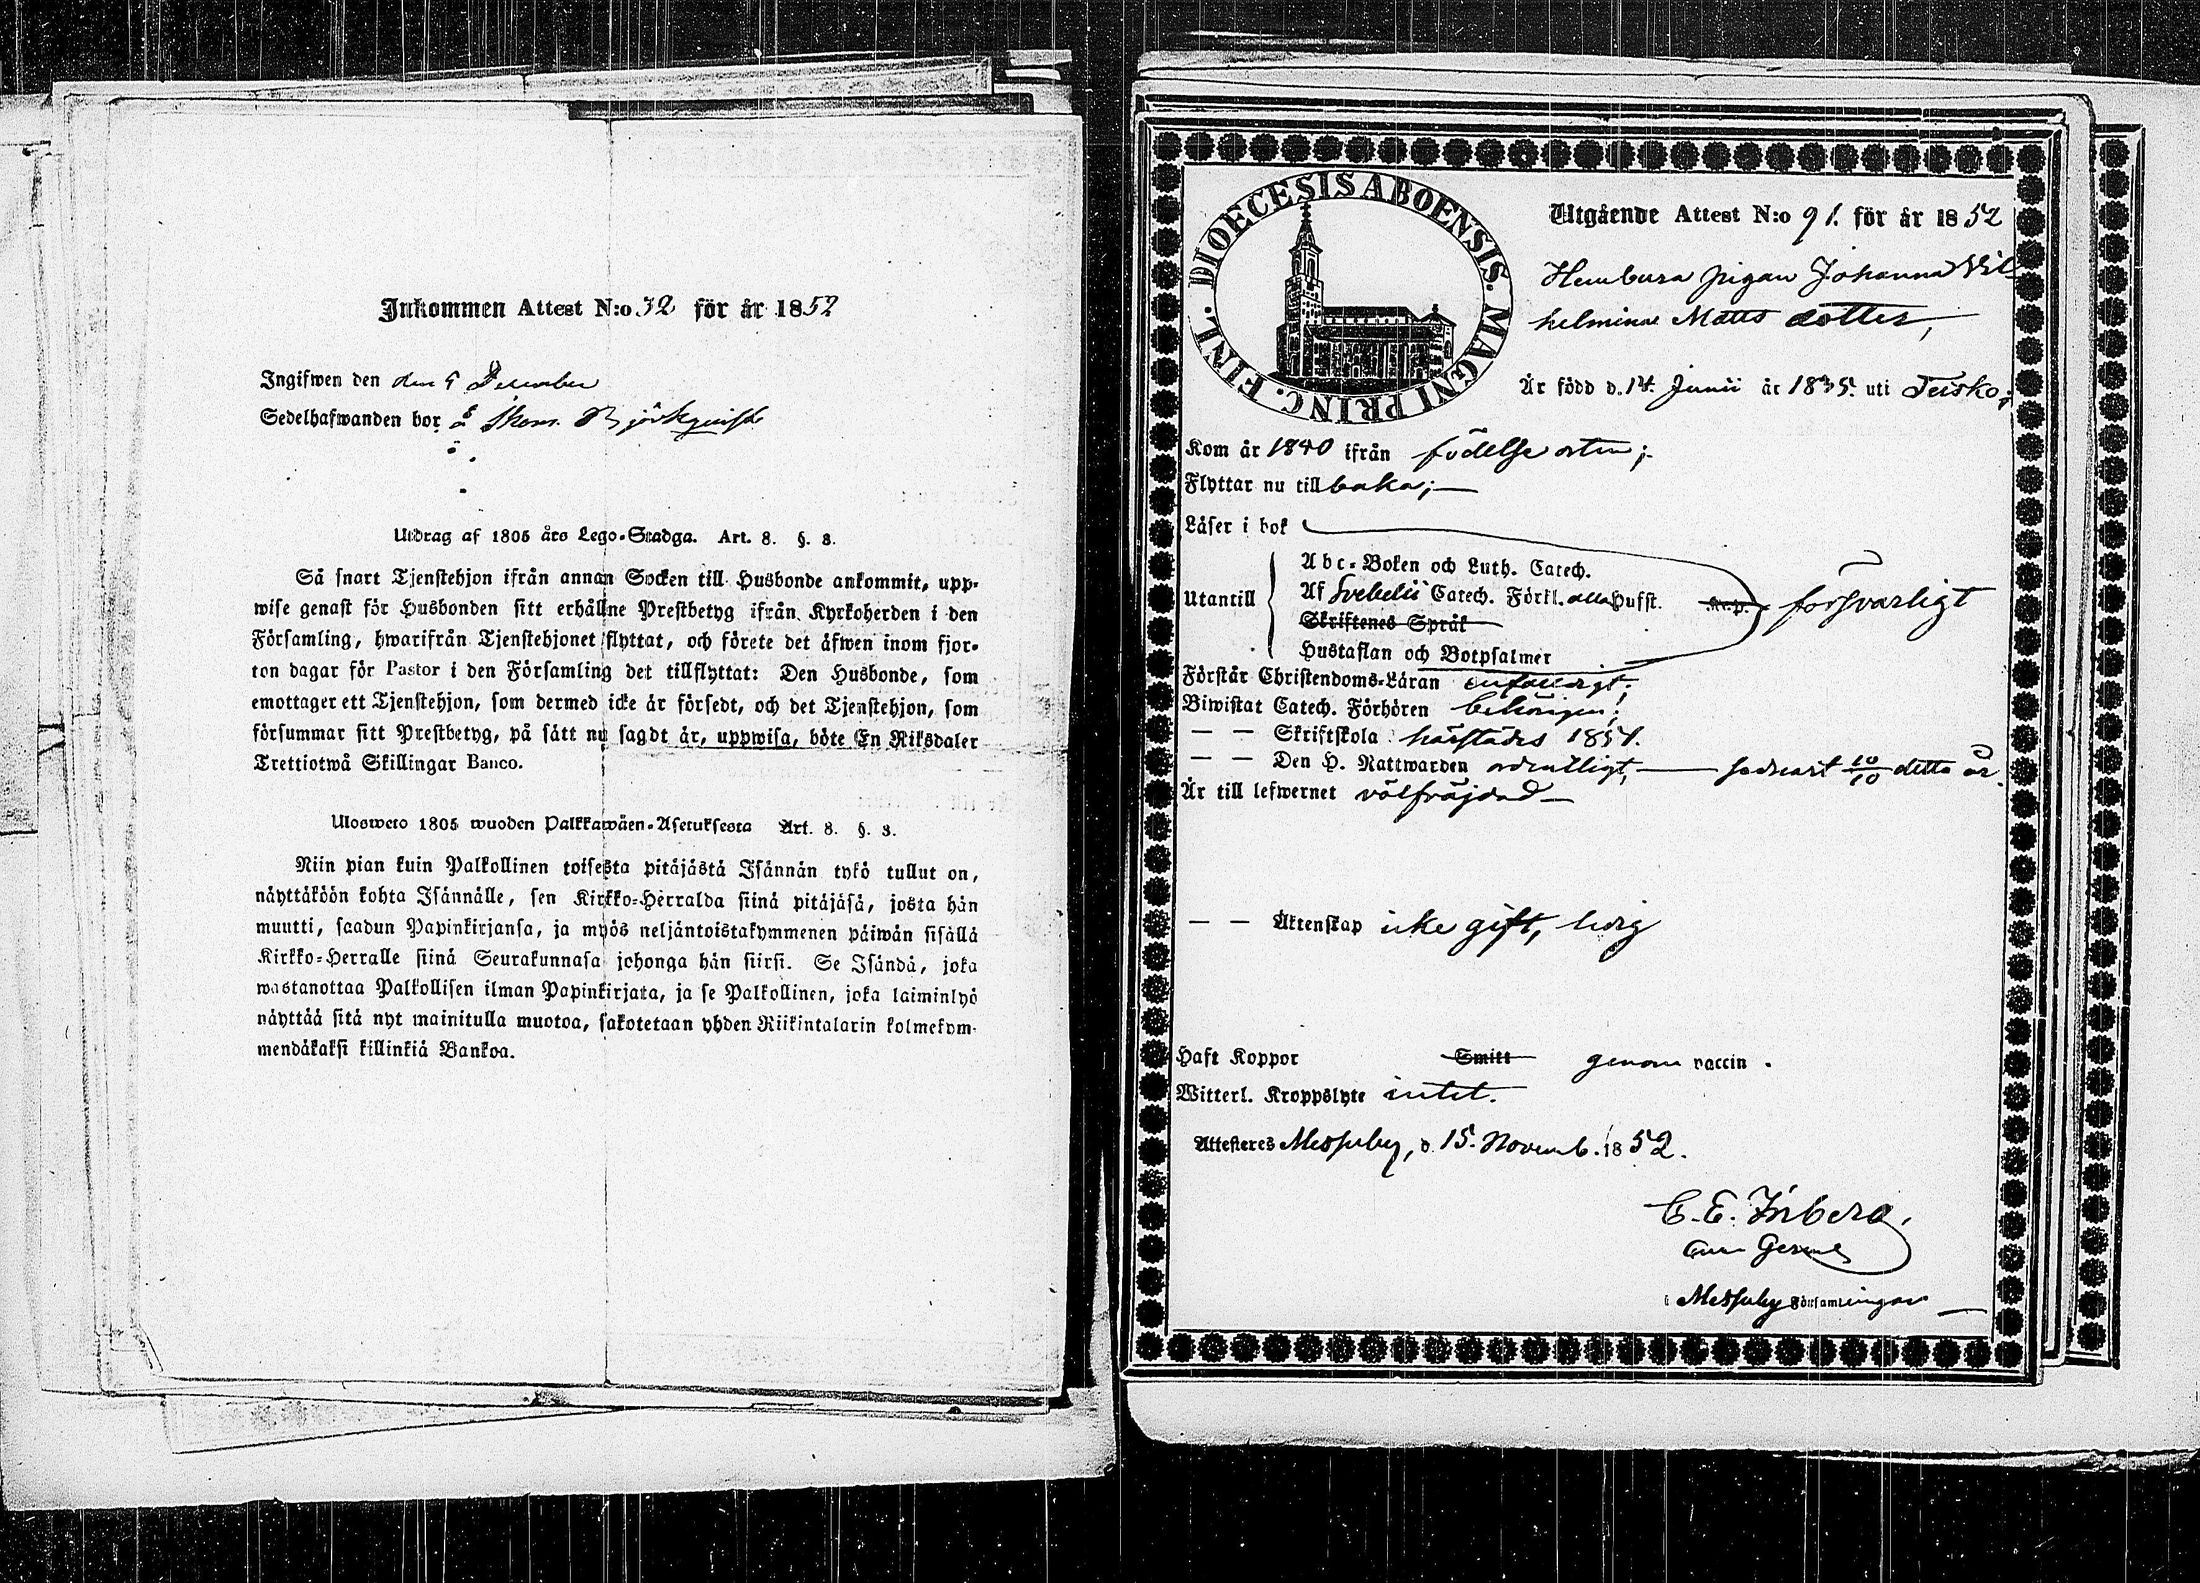 Inkommen Attest N:o 32 för år 1852
Ingifwen den den 9 December
Sedelhafwanden bor Björkqvist
Utdrag af 1805 års Lego-Stadga. Art. 8. §. 8.
Så snart Tjenstehjon ifrån annan Socken till Husbonde ankommit, upp-
wise genast för Husbonden sitt erhållne Prestbetyg ifrån Kyrkoherden i den
Församling, hwarifrån Tjenstehjonet flyttat, och förete det äfwen inom fjor-
ton dagar för Pastor i den Församling det tillflyttat: Den Husbonde, som
emottager ett Tjenstehjon, som dermed icke är försedt, och det Tjenstehjon, som
försummar sitt Prestbetyg, på sätt nu sagdt är, uppwisa, böte En Riksdaler
Trettiotwå Skillingar Banco.
Ulosweto 1805 wuoden Palkkawäen-Asetuksesta Art. 8. §. 8.
Niin pian kuin Palkollinen toisesta pitäjästä Isännän tykö tullut on,
näyttäköön kohta Isännälle, sen Kirkko-Herralda siinä pitäjäsä, josta hän
muutti, saadun Papinkirjansa, ja myös neljäntoistakymmenen päiwän sisällä
Kirkko-Herralle siinä Seurakunnasa johonga hän siirsi. Se Isändä, joka
wastanottaa Palkollisen ilman Papinkirjata, ja se Palkollinen, joka laiminlyö
näyttää sitä nyt mainitulla muotoa, sakotetaan yhden Riikintalarin kolmekym-
mendäkaksi killinkiä Bankoa.
DIOECESIS ABOENSIS. MAGNI PRINC. FINL.
Utgående Attest N:o 91. för år 1852
Hembura pigan Johanna Vil
helmina Matts dotter,
Är född d. 14. Junii år 1835. uti Teisko;
Kom år 1840 ifrån födelse orten;
Flyttar nu till baka;
Läser i bok
Abc-Boken och Luth. Catech.
Utantill Af Svebelii Catech. Förkl. alla Hufst. Kap. försvarligt
Skriftenes Språk
Hustaflan och Botpsalmer
Förstår Christendoms-Läran enfaldigt;
Biwistat Catech. Förhören behörigen;
— — Skriftskola härstädes 1851.
— — Den H. Nattwarden ordentligt, — sednast 10/10 detta år.
Är till lefwernet välfräjdad —
— — Äktenskap icke gift, ledig
Haft Koppor Smitt genom vaccin.
Witterl. Kroppslyte intet.
Attesteres Messuby, d. 15. Novemb. 1852.
C. E. Inberg.
i Messuby Församlingar —